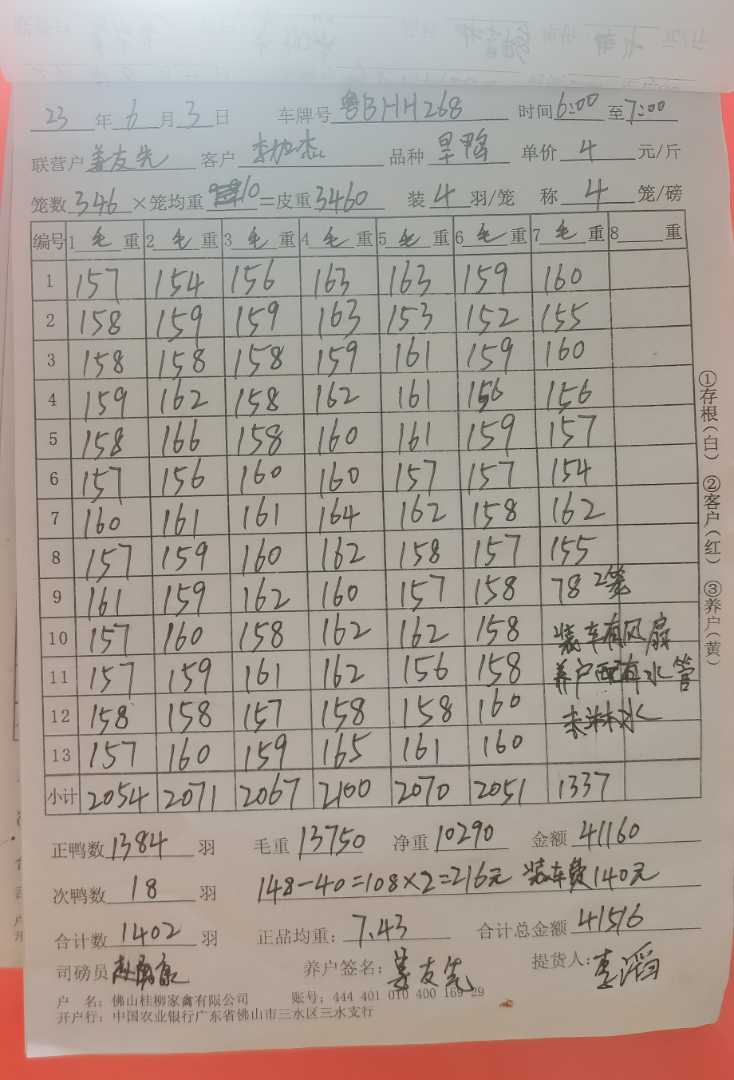 23 年 6 月 3 日 车牌号 粤BHH268 时间 6:00 至 7:00
联营户 姜友先 客户 品种 旱鸭 单价 4 元/斤
笼数 346 ×笼均重 10 =皮重 3460 装 4 羽/笼 称 4 笼/磅
编号 1 毛 重 2 毛 重 3 毛 重 4 毛 重 5 毛 重 6 毛 重 7 毛 重 8 重
1 157 154 156 163 163 159 160
2 158 159 159 163 153 152 155
3 158 158 158 159 161 159 160
4 159 162 158 162 161 156 156
5 158 166 158 160 161 159 157
6 157 156 160 160 157 157 154
7 160 161 161 164 162 158 162
8 157 159 160 162 158 157 155
9 161 159 162 160 157 158 78 2笼
10 157 160 158 162 162 158 装车有风扇
11 157 159 161 162 156 158 养户配有水管
12 158 158 157 158 158 160 未淋水
13 157 160 159 165 161 160
小计 2054 2071 2067 2100 2070 2051 1337
①存根(白) ②客户(红) ③养户(黄)
正鸭数 1384 羽 毛重 13750 净重 10290 金额 41160
次鸭数 18 羽 148-40=108×2=216元 装车费140元
合计数 1402 羽 正品均重: 7.43 合计总金额 41516
司磅员 养户签名: 姜友先 提货人: 李滔
户 名: 佛山桂柳家禽有限公司 账号: 444 401 010 400 169 29
开户行: 中国农业银行广东省佛山市三水区三水支行